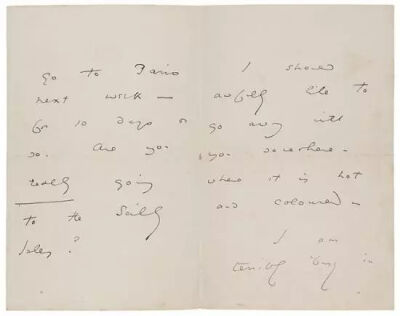 go to Paris
next week —
for 10 days or
so. Are you
really going
to the Scilly
Isles?
I should
awfully like to
go away with
you somewhere —
where it is hot
and coloured —
I am
terribly busy in